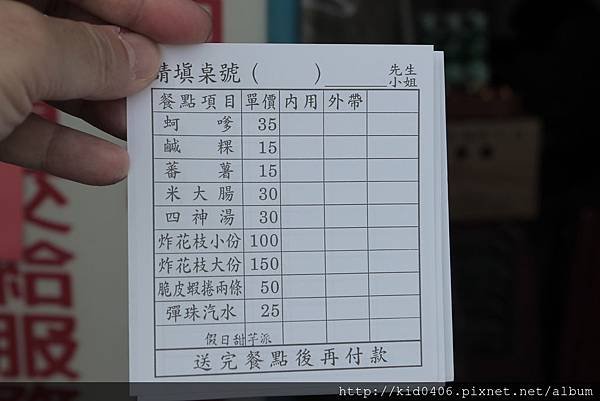 請填桌號 ( ) 先生
小姐
餐點項目 單價 內用 外帶
蚵 嗲 35
鹹 粿 15
蕃 薯 15
米 大 腸 30
四 神 湯 30
炸花枝小份 100
炸花枝大份 150
脆皮蝦捲兩條 50
彈珠汽水 25
假日甜芋派
送完餐點後再付款
給服
http://kid0406.pixnet.net/album